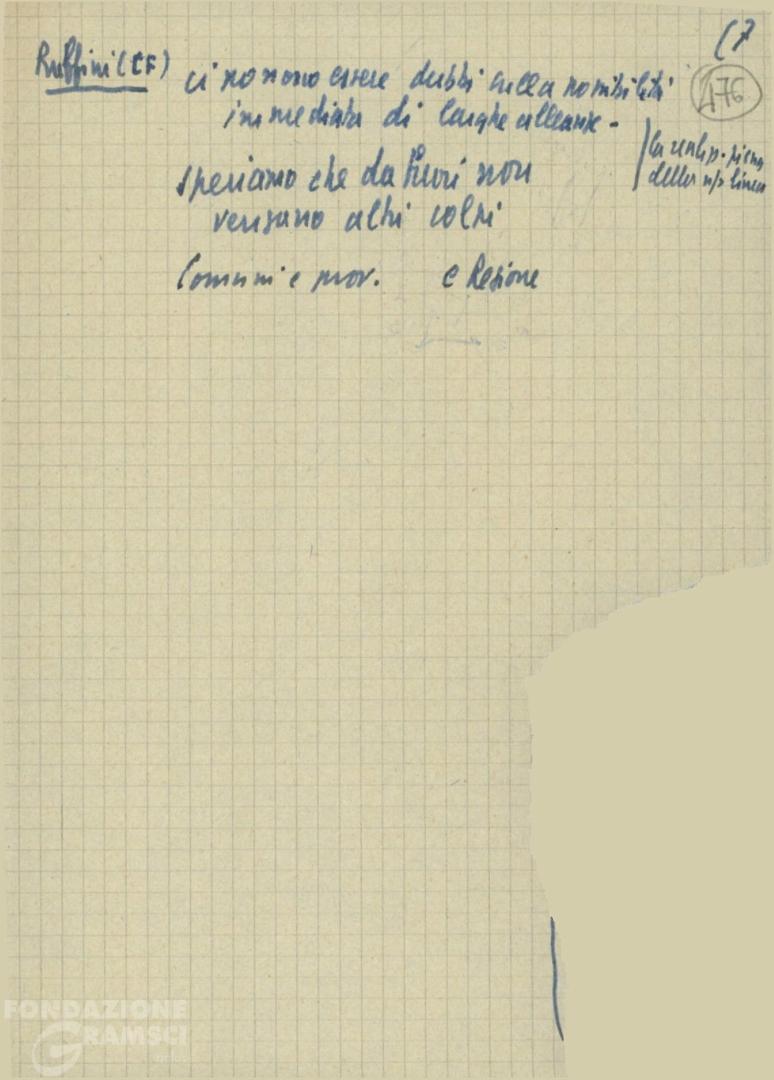 (7
476
Ruffini (CF) ci possono essere dubbi sulla possibilità
immediata di larghe alleanze -
della ns/ linea
speriamo che da fuori non
vengano altri colpi
Comuni e prov. e Regione
FONDAZIONE
GRAMSCI